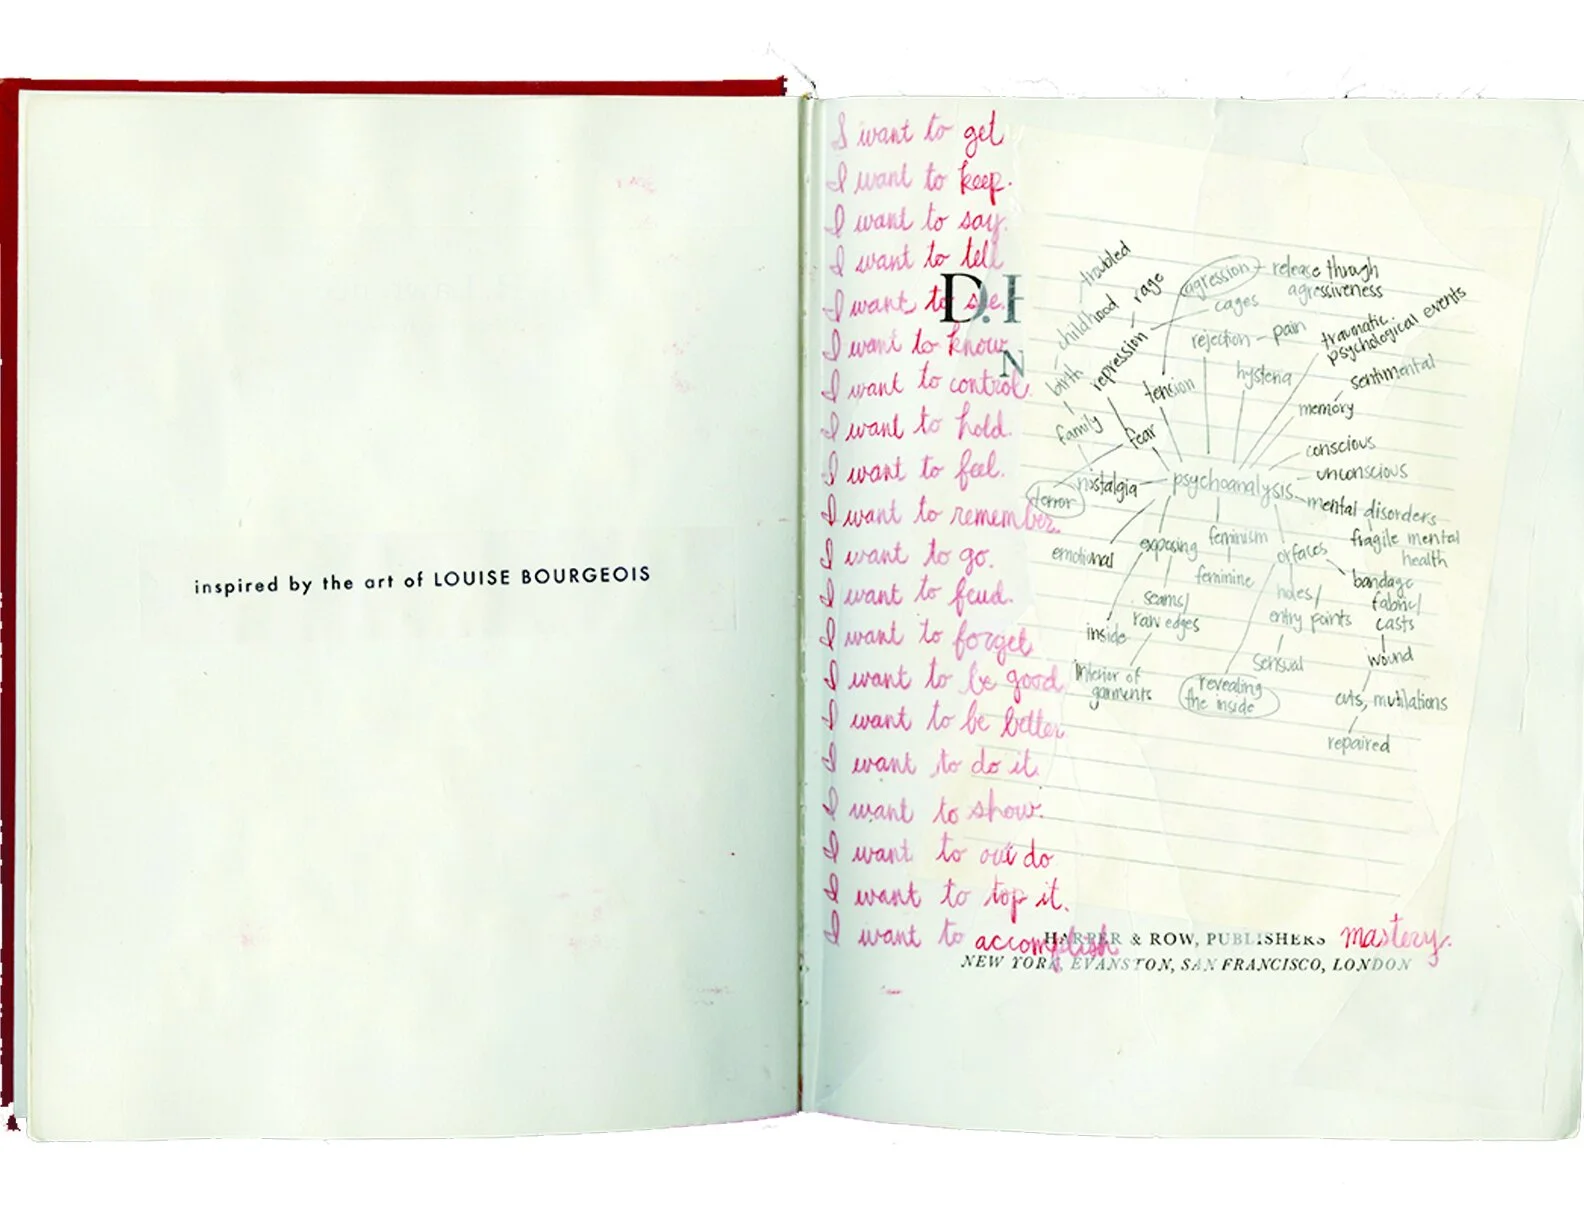 inspired by the art of LOUISE BOURGEOIS
I want to get
I want to keep.
I want to say.
I want to tell
I want to see.
I want to know
I want to control.
I want to hold.
I want to feel.
I want to remember.
I want to go.
I want to feud.
I want to forget
I want to be good
I want to be better
I want to do it.
I want to show.
I want to out do
I want to top it.
I want to accomplish mastery.
D.H
N
troubled
childhood
birth
family
nostalgia
rage
repression
fear
terror
agression - release through
agressiveness
cages
rejection - pain
tension
hysteria
traumatic
psychological events
sentimental
memory
conscious
unconscious
psychoanalysis
mental disorders
fragile mental
health
emotional
exposing
feminism
feminine
orfaces
seams/
raw edges
inside
interior of
garments
holes/
entry points
sensual
revealing
the inside
bandage
fabric/
casts
wound
cuts, mutilations
repaired
HARPER & ROW, PUBLISHERS
NEW YORK, EVANSTON, SAN FRANCISCO, LONDON